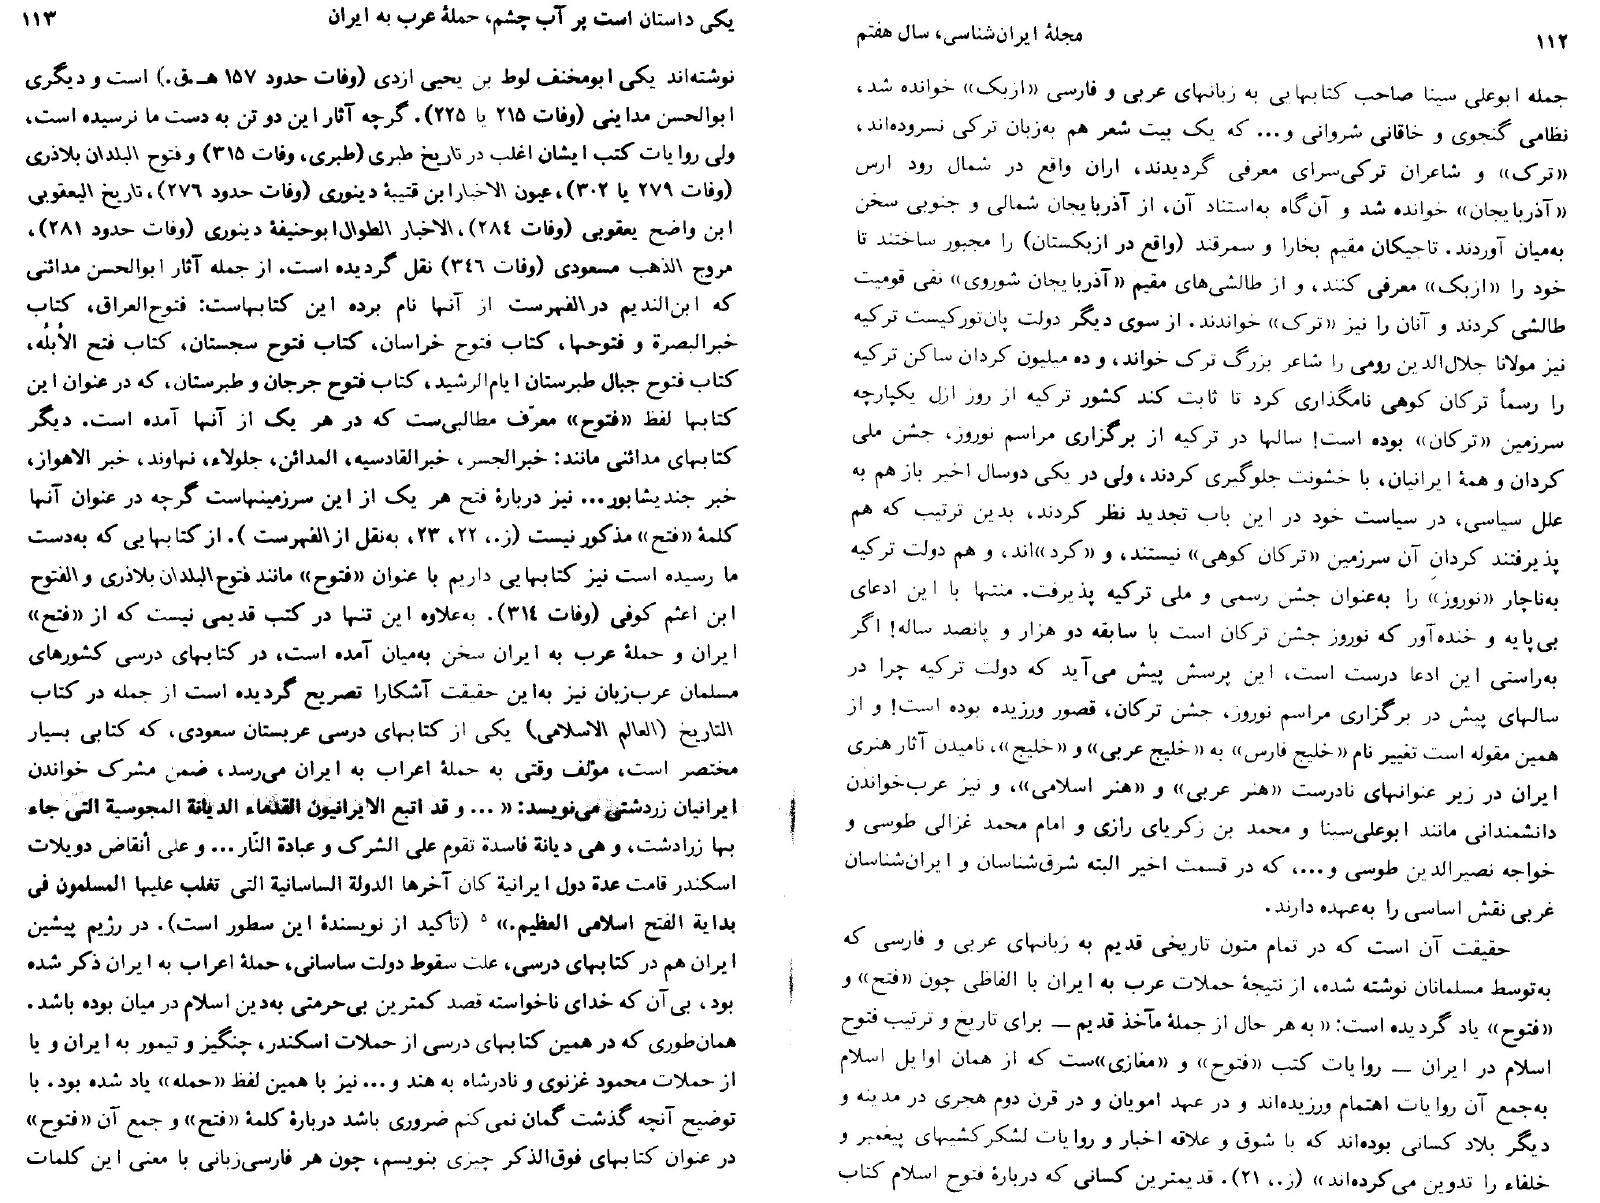 ۱۱۲
مجلهٔ ایران‌شناسی، سال هفتم
جمله ابوعلی سینا صاحب کتابهایی به زبانهای عربی و فارسی «ازبک» خوانده شد،
نظامی گنجوی و خاقانی شروانی و... که یک بیت شعر هم به‌زبان ترکی نسروده‌اند،
«ترک» و شاعران ترکی‌سرای معرفی گردیدند، اران واقع در شمال رود ارس
«آذربایجان» خوانده شد و آن‌گاه به‌استناد آن، از آذربایجان شمالی و جنوبی سخن
به‌میان آوردند. تاجیکان مقیم بخارا و سمرقند (واقع در ازبکستان) را مجبور ساختند تا
خود را «ازبک» معرفی کنند، و از طالشی‌های مقیم «آذربایجان شوروی» نفی قومیت
طالشی کردند و آنان را نیز «ترک» خواندند. از سوی دیگر دولت پان‌تورکیست ترکیه
نیز مولانا جلال‌الدین رومی را شاعر بزرگ ترک خواند، و ده میلیون کردان ساکن ترکیه
را رسماً ترکان کوهی نامگذاری کرد تا ثابت کند کشور ترکیه از روز ازل یکپارچه
سرزمین «ترکان» بوده است! سالها در ترکیه از برگزاری مراسم نوروز، جشن ملی
کردان و همهٔ ایرانیان، با خشونت جلوگیری کردند، ولی در یکی دوسال اخیر باز هم به
علل سیاسی، در سیاست خود در این باب تجدید نظر کردند، بدین ترتیب که هم
پذیرفتند کردانِ آن سرزمین «ترکان کوهی» نیستند، و «کرد»اند، و هم دولت ترکیه
به‌ناچار «نوروز» را به‌عنوان جشن رسمی و ملی ترکیه پذیرفت. منتها با این ادعای
بی‌پایه و خنده‌آور که نوروز جشن ترکان است با سابقه دو هزار و پانصد ساله! اگر
به‌راستی این ادعا درست است، این پرسش پیش می‌آید که دولت ترکیه چرا در
سالهای پیش در برگزاری مراسم نوروز، جشن ترکان، قصور ورزیده بوده است! و از
همین مقوله است تغییر نام «خلیج فارس» به «خلیج عربی» و «خلیج»، نامیدن آثار هنری
ایران در زیر عنوانهای نادرست «هنر عربی» و «هنر اسلامی»، و نیز عرب‌خواندن
دانشمندانی مانند ابوعلی‌سینا و محمد بن زکریای رازی و امام محمد غزالی طوسی و
خواجه نصیرالدین طوسی و...، که در قسمت اخیر البته شرق‌شناسان و ایران‌شناسان
غربی نقش اساسی را به‌عهده دارند.
حقیقت آن است که در تمام متون تاریخی قدیم به زبانهای عربی و فارسی که
به‌توسط مسلمانان نوشته شده، از نتیجهٔ حملات عرب به ایران با الفاظی چون «فتح» و
«فتوح» یاد گردیده است: «به هر حال از جملهٔ مآخذ قدیم ــ برای تاریخ و ترتیب فتوح
اسلام در ایران ــ روایات کتب «فتوح» و «مغازی»ست که از همان اوایل اسلام
به‌جمع آن روایات اهتمام ورزیده‌اند و در عهد امویان و در قرن دوم هجری در مدینه و
دیگر بلاد کسانی بوده‌اند که با شوق و علاقه اخبار و روایات لشکرکشیهای پیغمبر و
خلفاء را تدوین می‌کرده‌اند» (ز.، ۲۱). قدیمترین کسانی که دربارهٔ فتوح اسلام کتاب
یکی داستان است پر آب چشم، حملهٔ عرب به ایران
۱۱۳
نوشته‌اند یکی ابومخنف لوط بن یحیی ازدی (وفات حدود ۱۵۷ هـ.ق.) است و دیگری
ابوالحسن مداینی (وفات ۲۱۵ یا ۲۲۵). گرچه آثار این دو تن به دست ما نرسیده است،
ولی روایات کتب ایشان اغلب در تاریخ طبری (طبری، وفات ۳۱۵) و فتوح البلدان بلاذری
(وفات ۲۷۹ یا ۳۰۲)، عیون الاخبار ابن قتیبهٔ دینوری (وفات حدود ۲۷۶)، تاریخ الیعقوبی
ابن واضح یعقوبی (وفات ۲۸۴)، الاخبار الطوال ابوحنیفهٔ دینوری (وفات حدود ۲۸۱)،
مروج الذهب مسعودی (وفات ۳۴۶) نقل گردیده است. از جمله آثار ابوالحسن مدائنی
که ابن‌الندیم در الفهرست از آنها نام برده این کتابهاست: فتوح‌العراق، کتاب
خبرالبصرة و فتوحها، کتاب فتوح خراسان، کتاب فتوح سجستان، کتاب فتح الأبله،
کتاب فتوح جبال طبرستان ایام‌الرشید، کتاب فتوح جرجان و طبرستان، که در عنوان این
کتابها لفظ «فتوح» معرّف مطالبی‌ست که در هر یک از آنها آمده است. دیگر
کتابهای مدائنی مانند: خبرالجسر، خبرالقادسیه، المدائن، جلولاء، نهاوند، خبر الاهواز،
خبر جندیشابور... نیز دربارهٔ فتح هر یک از این سرزمینهاست گرچه در عنوان آنها
کلمهٔ «فتح» مذکور نیست (ز.، ۲۲، ۲۳، به‌نقل از الفهرست ). از کتابهایی که به‌دست
ما رسیده است نیز کتابهایی داریم با عنوان «فتوح» مانند فتوح البلدان بلاذری و الفتوح
ابن اعثم کوفی (وفات ۳۱۴). به‌علاوه این تنها در کتب قدیمی نیست که از «فتح»
ایران و حملهٔ عرب به ایران سخن به‌میان آمده است، در کتابهای درسی کشورهای
مسلمان عرب‌زبان نیز به‌این حقیقت آشکارا تصریح گردیده است از جمله در کتاب
التاریخ (العالم الاسلامی) یکی از کتابهای درسی عربستان سعودی، که کتابی بسیار
مختصر است، مؤلف وقتی به حملهٔ اعراب به ایران می‌رسد، ضمن مشرک خواندن
ایرانیان زردشتی می‌نویسد: «... و قد اتبع الایرانیون القدماء الدیانة المجوسیة التی جاء
بها زرادشت، و هی دیانة فاسدة تقوم علی الشرک و عبادة النّار... و علی أنقاض دویلات
اسکندر قامت عدة دول ایرانیة کان آخرها الدولة الساسانیة التی تغلب علیها المسلمون فی
بدایة الفتح اسلامی العظیم.» ۵ (تأکید از نویسندهٔ این سطور است). در رژیم پیشین
ایران هم در کتابهای درسی، علت سقوط دولت ساسانی، حملهٔ اعراب به ایران ذکر شده
بود، بی‌آن که خدای ناخواسته قصد کمترین بی‌حرمتی به‌دین اسلام در میان بوده باشد.
همان‌طوری که در همین کتابهای درسی از حملات اسکندر، چنگیز و تیمور به ایران و یا
از حملات محمود غزنوی و نادرشاه به هند و... نیز با همین لفظ «حمله» یاد شده بود. با
توضیح آنچه گذشت گمان نمی‌کنم ضروری باشد دربارهٔ کلمهٔ «فتح» و جمع آن «فتوح»
در عنوان کتابهای فوق‌الذکر چیزی بنویسم، چون هر فارسی‌زبانی با معنی این کلمات